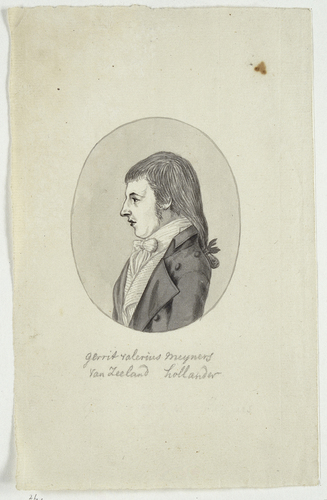 gerrit valerius Meyners
Van Zeeland hollander